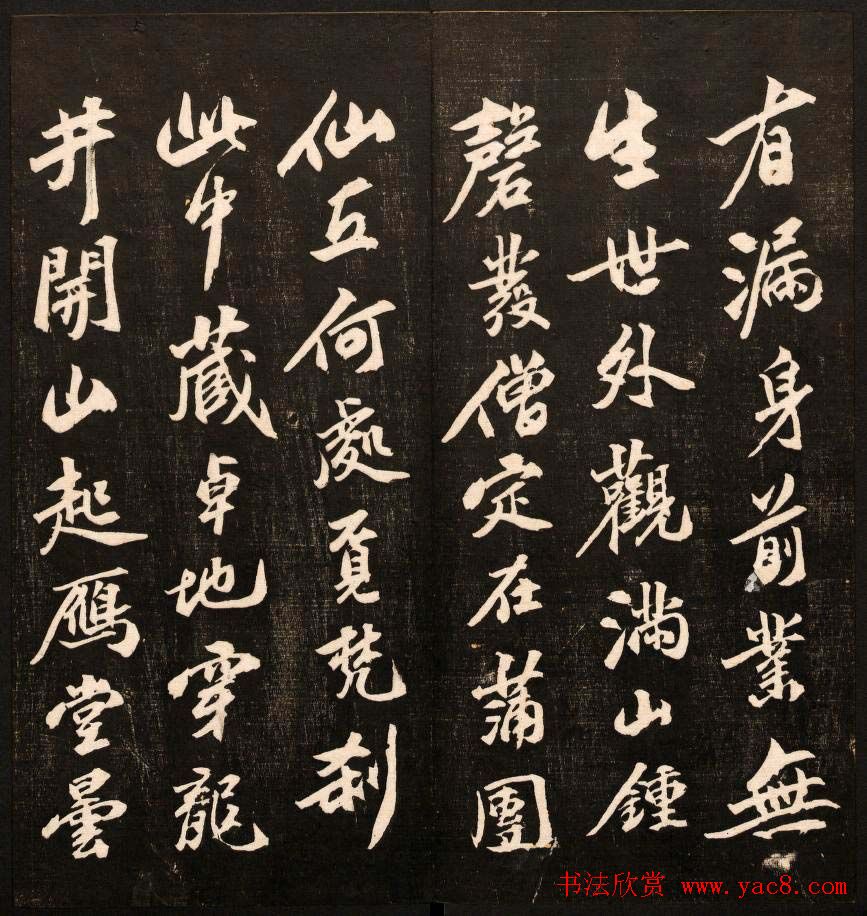 有漏身前業無
生世外觀滿山鍾
磬發僧定在蒲團
仙丘何處覓梵刹
此中藏卓地穿龍
井開山起鴈堂曇
书法欣赏 www.yac8.com